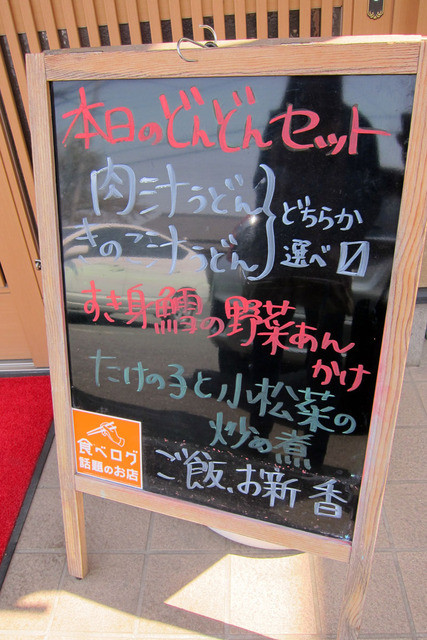 本日のどんどんセット
肉汁うどん
きのこ汁うどん
どちらか
選べ〼
すき身鱈の野菜あん
かけ
たけの子と小松菜の
炒め煮
ご飯、お新香
食べログ
話題のお店